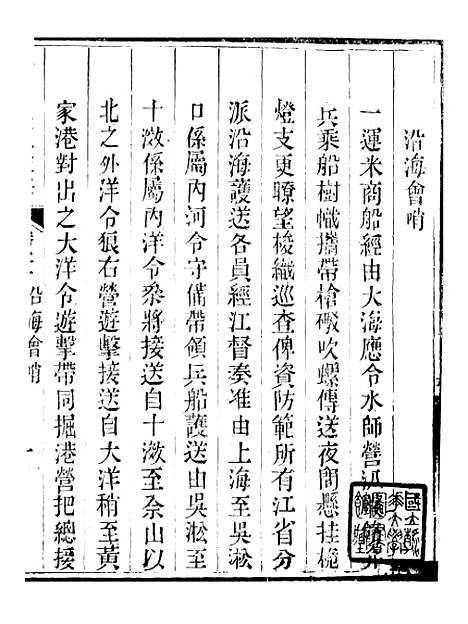 沿海會哨
一運米商船經由大海應令水師營
兵乘船樹幟攜帶槍礮吹螺傳送夜間懸挂桅
燈支更瞭望梭織巡查俾資防範所有江省分
派沿海護送各員經江督奏准由上海至吳淞
口係屬內河令守備帶領兵船護送由吳淞至
十滧係屬內洋令叅將接送自十滧至佘山以
北之外洋令狼右營遊擊接送自大洋稍至黃
家港對出之大洋令遊擊帶同掘港營把總接
沿海會哨